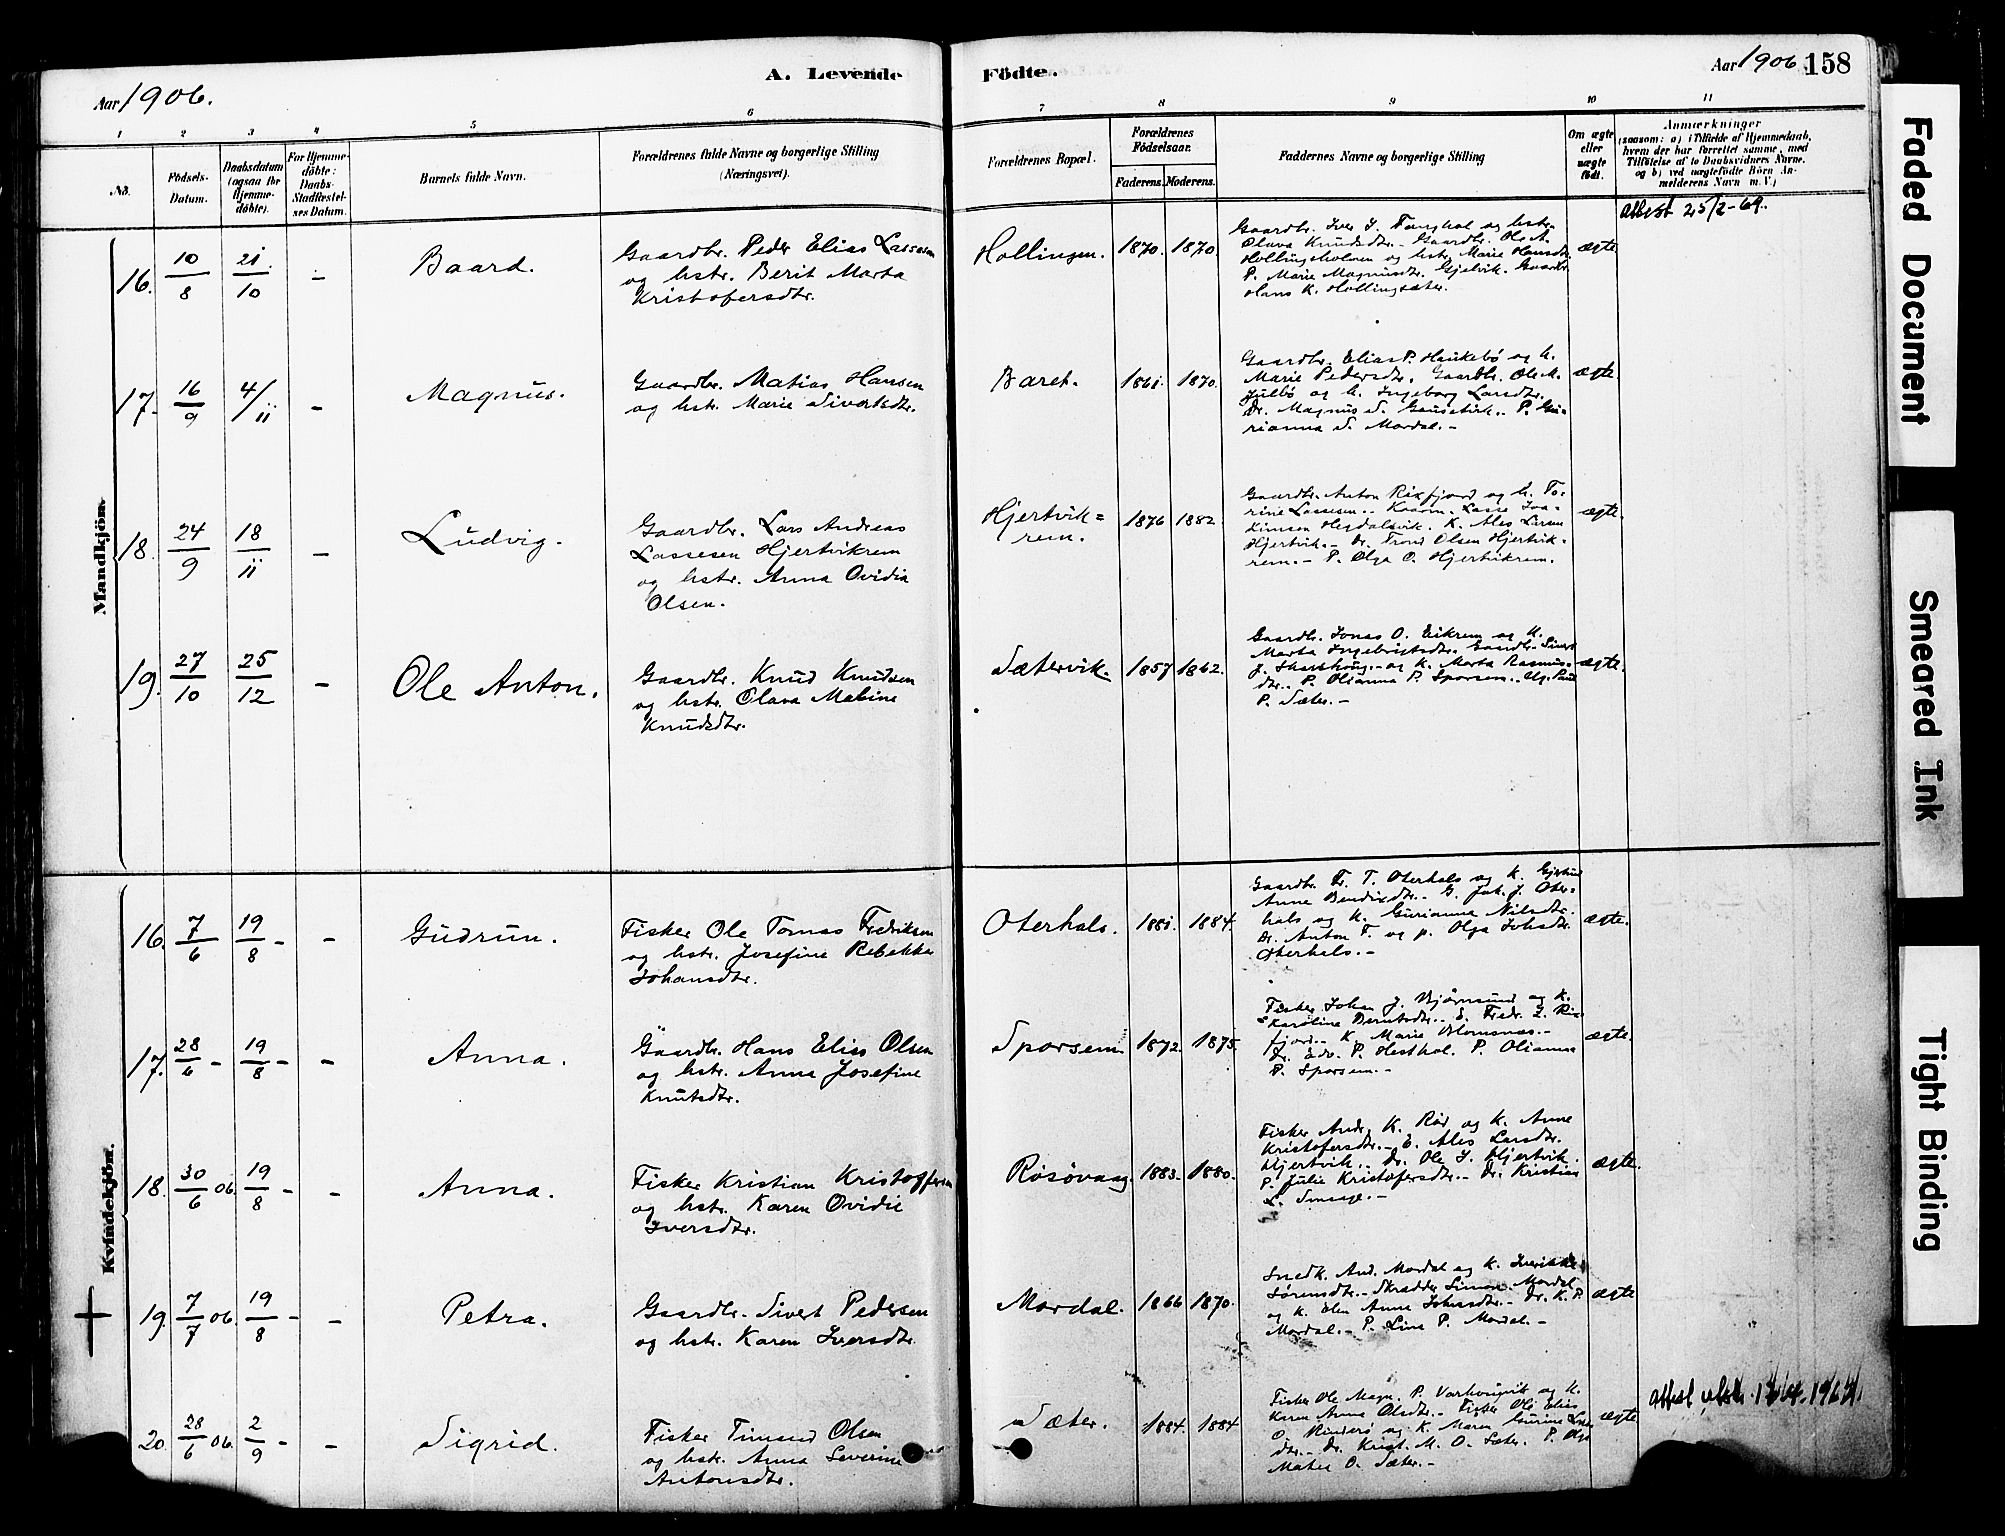 A. Levende Födte.
Aar 1906.
Aar 1906. 158
1 2 3 4 5 6 7 8 9 10 11
No.
Födsels-
Datum.
Daabsdatum
(ogsaa for
Hjemme-
döbte).
For Hjemme-
döbte:
Daabs-
Stadfæstel-
ses Datum.
Barnets fulde Navn.
Forældrenes fulde Navne og borgerlige Stilling
(Næringsvei).
Forældrenes Bopæl.
Forældrenes
Födselsaar.
Faderens. Moderens.
Faddernes Navne og borgerlige Stilling
Om ægte
eller
uægte
födt.
Anmærkninger
(saasom: a) i Tilfælde af Hjemmedaab,
hvem der har forrettet samme, med
Tilföielse af to Daabsvidners Navne.
og b) ved uægtefödte Börn An-
melderens Navn m. V.)
Mandkjön.
16. 10/8 21/10 - Baard.
Gaardbr. Peder Elias Lassesen
og hstr. Berit Marta
Kristofersdtr.
Hollingen. 1870. 1870.
Gaardbr. Iver J. Tanghol og hstr.
Olava Knudsdtr. - Gaardbr. Ole A.
Hollingsholmen og hstr. Marie Hansdtr.
P. Marie Magnusdtr. Gjelvik. Gaardbr.
Hans K. Hollingsæter.
ægte.
Attest 25/2-69.
17. 16/9 4/11 - Magnus.
Gaardbr. Matias Hansen
og hstr. Marie Sivertsdtr.
Baret. 1861. 1870.
Gaardbr. Elias P. Haukebö og h.
Marie Pedersdtr. Gaardbr. Ole M.
Julbö og h. Ingeborg Larsdtr.
Dr. Magnus S. P. Gu-
rianna S. Mordal. -
ægte.
18. 24/9 18/11 - Ludvig.
Gaardbr. Lars Andreas
Lassesen Hjertvikrem
og hstr. Anna Ovidia
Olsen.
Hjertvik=
rem. 1876 1882.
Gaardbr. Anton Rixfjord og h. To-
rine Lassesen. - Lasse Joa-
kimsen Hegdalsvik. K. Ales
Hjertvik. - Dr. Trond Olsen Hjertvik-
rem. - P. Olga O. Hjertvikrem.
ægte.
19. 27/10 25/12 - Ole Anton.
Gaardbr. Knud Knudsen
og hstr. Olava Maline
Knudsdtr.
Sætervik. 1857 1862.
Gaardbr. Jonas O. Eikrem og K.
Marta Ingebrigtsdtr. Gaardbr. Sivert
J. og K. Marta Rasmus-
dtr. - P. Olianna P. Sporsem. - Paul
P. Sæter. -
ægte.
Kvindekjön.
16. 7/6 19/8 - - Gudrun.
Fisker Ole Tomas Fredriksen
og hstr. Josefine Rebekka
Johansdtr.
Oterhals. 1881. 1884.
Gaardbr. Fr. T. Oterhals og K. Gjertrud
Anne Bendixdtr. - G. Joh. J. Oter-
hals og K. Gurianna Nilsdtr.
Dr. Anton F. og p. Olga Johsdtr.
Oterhals. -
ægte.
17. 28/6 - 19/8 - - Anna.
Gaardbr. Hans Elias Olsen
og hstr. Anna Josefine
Knutsdtr.
Sporsem 1872. 1875.
Fisker Johan J. Bjørnsund og K.
Karoline Berntsdtr. - E. Fredr. L. Rix-
fjord. - K. Marie
Dr. Edv. P. Hesthol. P. Olianna
P. Sporsem. -
ægte.
18. 30/6 06. 19/8 - - Anna.
Fisker Kristian Kristoffersen
og hstr. Karen Ovidie
Iversdtr.
Røsøvaag 1883. 1880.
Fisker Andr. K. Rød og K. Anne
Kristofersdtr. - E. Ales Larsdtr.
Hjertvik. - Dr. Ole J. Hjertvik.
P. Julie Kristofersdtr. - Dr. Kristian
L. Smaage. -
ægte.
19. 7/7 06. 19/8 - - Petra.
Gaardbr. Sivert Pedersen
og hstr. Karen Iversdtr.
Mordal. 1866 1870.
Snedk. And. Mordal og K. Iverikke
Sörensdtr. - Skrædder Simon Mordal
og K. Elen Anna Johnsdtr. - Dr. K. P.
Mordal. - P. Line P. Mordal. -
ægte
20. 28/6 06. 2/9 - - Sigrid.
Fisker Timand Olsen
og hstr. Anna Severine
Antonsdtr.
Sæter. 1884. 1884
Fisker Ole Magn. P. Varhougvik og K.
Karen Anna Olsdtr. - Fisker Ole Elias
O. Rinderö og K. Maren Gurine
dtr. - Dr. Krist. M. O. Sæter. P. Olga
Matea O. Sæter. -
ægte
Attest
Faded Document
Smeared Ink
Tight Binding